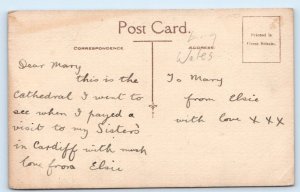 Post Card.
CORRESPONDENCE
ADDRESS.
Printed in Great Britain.
Wales
Dear Mary
this is the
Cathedral I went to
see when I payed a
visit to my Sisters
in Cardiff with much
love from Elsie
To Mary
from Elsie
with love X X X